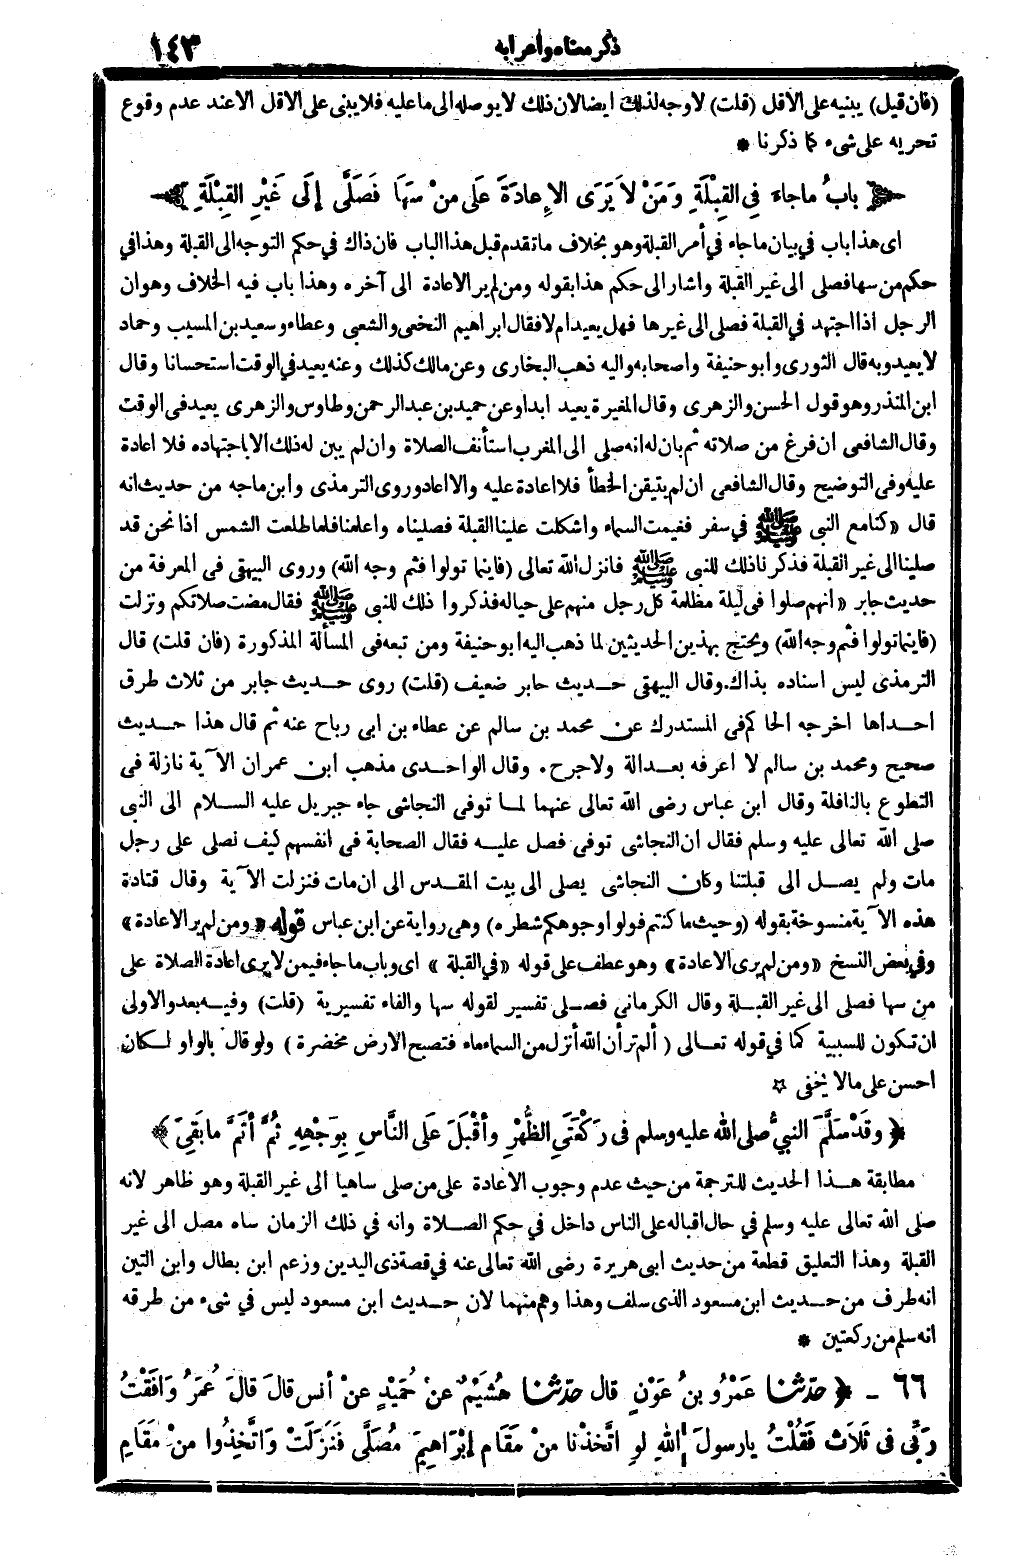 ذكر معناه واعرابه ١٤٣
(فان قيل) يبنيه على الاقل (قلت) لا وجه لذلك ايضا لان ذلك لا يوصله الى ما عليه فلا يبنى على الاقل الا عند عدم وقوع
تحريه على شىء كما ذكرنا *
﴿ بابُ ما جاءَ فِي القِبْلَةِ وَمَنْ لاَ يَرَى الإِعادَةَ عَلَى مَنْ سَهَا فَصَلَّى إِلَى غَيْرِ القِبْلَةِ ﴾
اى هذا باب في بيان ما جاء في أمر القبلة وهو بخلاف ما تقدم قبل هذا الباب فان ذاك في حكم التوجه الى القبلة وهذا في
حكم من سها فصلى الى غير القبلة واشار الى حكم هذا بقوله ومن لم ير الاعادة الى آخره وهذا باب فيه الخلاف وهو ان
الرجل اذا اجتهد في القبلة فصلى الى غيرها فهل يعيد ام لا فقال ابراهيم النخعى والشعبى وعطاء وسعيد بن المسيب وحماد
لا يعيد وبه قال الثورى وابو حنيفة واصحابه واليه ذهب البخارى وعن مالك كذلك وعنه يعيد في الوقت استحسانا وقال
ابن المنذر وهو قول الحسن والزهرى وقال المغيرة يعيد ابدا وعن حميد بن عبد الرحمن وطاوس والزهرى يعيد فى الوقت
وقال الشافعى ان فرغ من صلاته ثم بان له انه صلى الى المغرب استأنف الصلاة وان لم يبن له ذلك الا باجتهاده فلا اعادة
عليه وفى التوضيح وقال الشافعى ان لم يتيقن الخطأ فلا اعادة عليه والا اعاد وروى الترمذى وابن ماجه من حديث انه
قال «كنا مع النبى ﷺ في سفر فغيمت السماء واشكلت علينا القبلة فصلينا واعلمنا فلما طلعت الشمس اذا نحن قد
صلينا الى غير القبلة فذكرنا ذلك للنبى ﷺ فانزل الله تعالى (فاينما تولوا فثم وجه الله) وروى البيهقى فى المعرفة من
حديث جابر «انهم صلوا فى ليلة مظلمة كل رجل منهم على حياله فذكروا ذلك للنبى ﷺ فقال مضت صلاتكم ونزلت
(فاينما تولوا فثم وجه الله) ويحتج بهذين الحديثين لما ذهب اليه ابو حنيفة ومن تبعه فى المسألة المذكورة (فان قلت) قال
الترمذى ليس اسناده بذاك.وقال البيهقى حـديث جابر ضعيف (قلت) روى حـديث جابر من ثلاث طرق
احـداها اخرجه الحاكم فى المستدرك عن محمد بن سالم عن عطاء بن ابى رباح عنه ثم قال هذا حـديث
صحيح ومحمد بن سالم لا اعرفه بعـدالة ولا جرح . وقال الواحـدى مذهب ابن عمران الآية نازلة فى
التطوع بالنافلة وقال ابن عباس رضى الله تعالى عنهما لمـا توفى النجاشى جاء جبريل عليه السـلام الى النبى
صلى الله تعالى عليه وسلم فقال ان النجاشى توفى فصل عليـه فقال الصحابة فى انفسهم كيف نصلى على رجل
مات ولم يصـل الى قبلتنا وكان النجاشى يصلى الى بيت المقـدس الى ان مات فنزلت الآية وقال قتادة
هذه الآية منسوخة بقوله (وحيث ما كنتم فولوا وجوهكم شطره) وهى رواية عن ابن عباس قوله «ومن لم ير الاعادة»
وفى بعض النسخ «ومن لم يرى الاعادة» وهو عطف على قوله «فى القبلة» اى وباب ما جاء فيمن لا يرى اعادة الصلاة على
من سها فصلى الى غير القبـلة وقال الكرمانى فصـلى تفسير لقوله سها والفاء تفسيرية (قلت) وفيـه بعد والاولى
ان تكون للسببية كما في قوله تعـالى (ألم تر أن الله أنزل من السماء ماء فتصبح الارض مخضرة) ولو قال بالواو لـكان
احسن على مالا يخفى ☆
﴿ وقَدْ سَلَّمَ النبيُّ صلى الله عليه وسلم فى رَكْعَتَيِ الظُّهْرِ وأقْبَلَ عَلَى النَّاسِ بِوَجْهِهِ ثُمَّ أَتَمَّ ما بَقِيَ ﴾
مطابقة هـذا الحديث للترجمة من حيث عدم وجوب الاعادة على من صلى ساهيا الى غير القبلة وهو ظاهر لانه
صلى الله تعالى عليه وسلم في حال اقباله على الناس داخل في حكم الصـلاة وانه في ذلك الزمان ساه مصل الى غير
القبلة وهذا التعليق قطعة من حديث ابى هريرة رضى الله تعالى عنه في قصة ذى اليدين وزعم ابن بطال وابن التين
انه طرف من حـديث ابن مسعود الذى سلف وهذا وهم منهما لان حـديث ابن مسعود ليس في شىء من طرقه
انه سلم من ركعتين *
٦٦ - ﴿ حَدَّثَنَا عَمْرُو بنُ عَوْنٍ قال حَدَّثَنَا هُشَيْمٌ عَنْ حُمَيْدٍ عنْ أنس قالَ قالَ عُمَرُ وَافَقْتُ
رَبِّى فى ثَلَاث فَقُلْتُ يا رسولَ اللهِ لوِ اتَّخَذْنا مِنْ مَقَام إبْرَاهِيمَ مُصَلَّى فَنَزَلَتْ وَاتَّخِذُوا منْ مَقَامِ